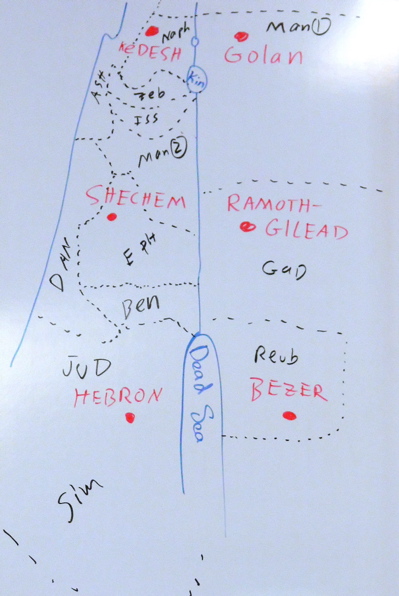 Naph
Man①
KEDESH
Golan
ASH
Kin
Zeb
ISS
Man②
SHECHEM
RAMOTH-
GILEAD
DAN
EPH
GaD
Ben
JUD
Dead Sea
Reub
HEBRON
BEZER
Sim